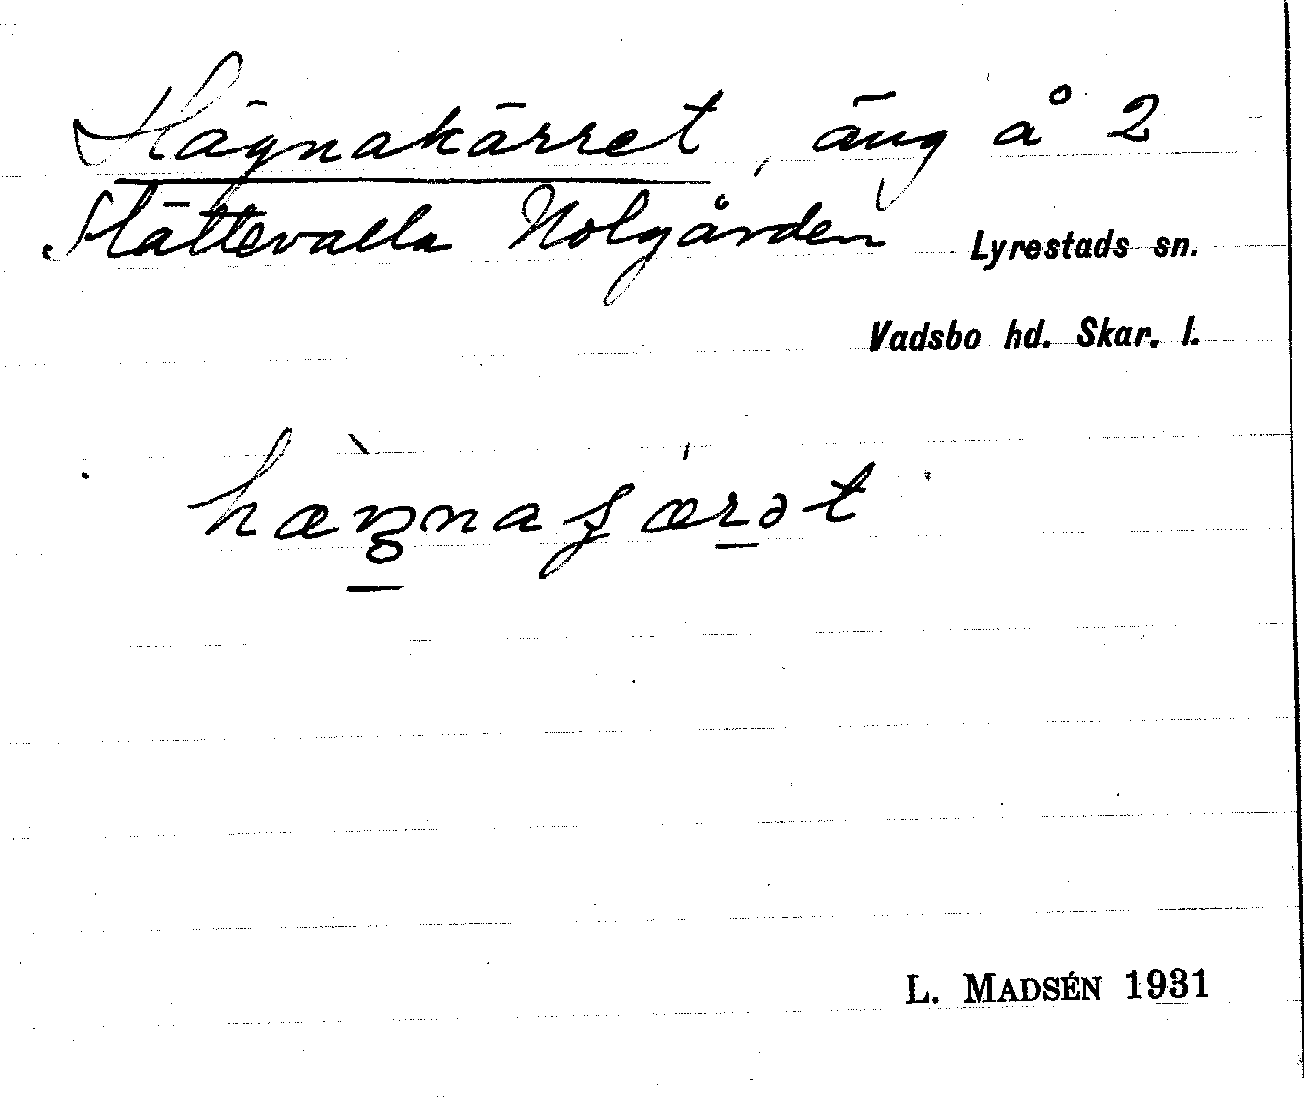 Hägnakärret, äng å 2
Slättevalla Nolgården Lyrestads sn.
Vadsbo hd. Skar. l.
L. MADSÉN 1931